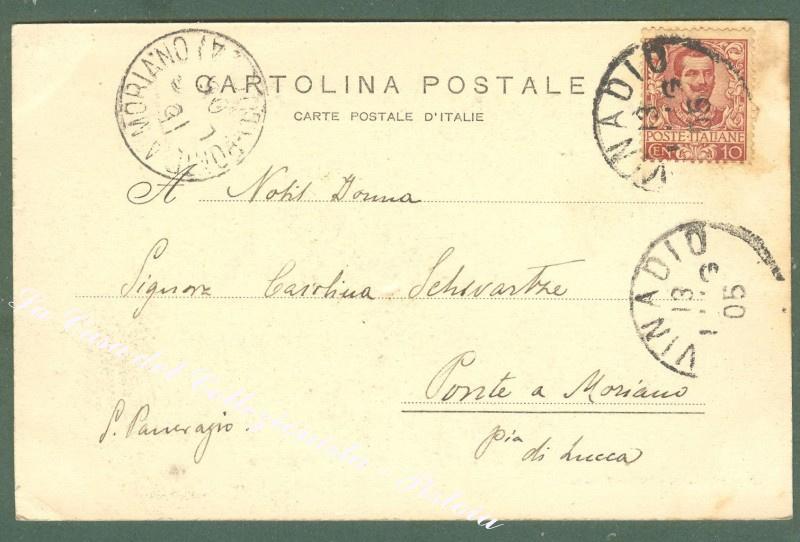 CARTOLINA POSTALE
CARTE POSTALE D'ITALIE
POSTE·ITALIANE
CEN 10
VINADIO
13
05
MORIANO
A Nobil Donna
Signora Carolina Schwartze
VINADIO
13
05
Ponte a Moriano
S. Pancrazio.
pia
di Lucca
La Casa del Collezionista - Pistoia